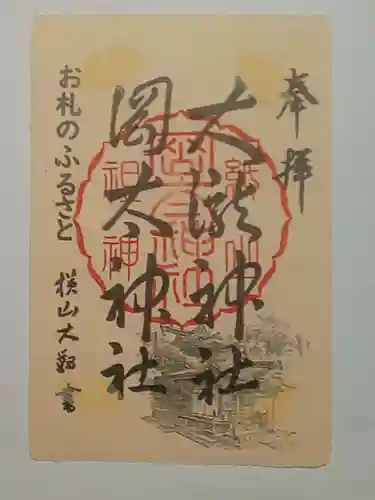 奉拝
大瀧神社
岡太神社
お札のふるさと
横山大観書
紙祖神